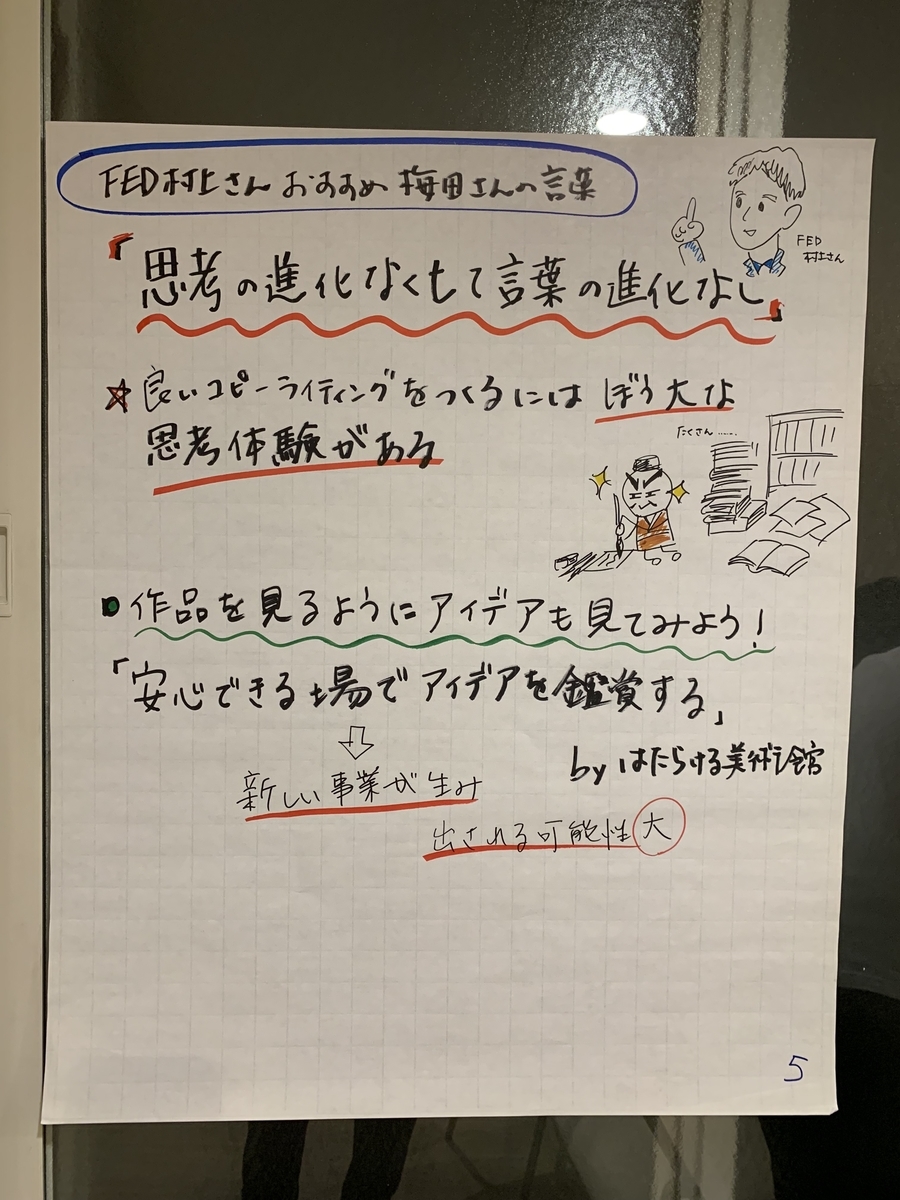 FED村上さん おすすめ 梅田さんの言葉
FED
村上さん
『思考の進化なくもて言葉の進化なし』
☆良いコピーライティングをつくるには ぼう大な
思考体験がある
たくさん……
作品を見るようにアイデアも見てみよう!
「安心できる場でアイデアを鑑賞する」
by はたらける美術館
新しい事業が生み
出される可能性大
5